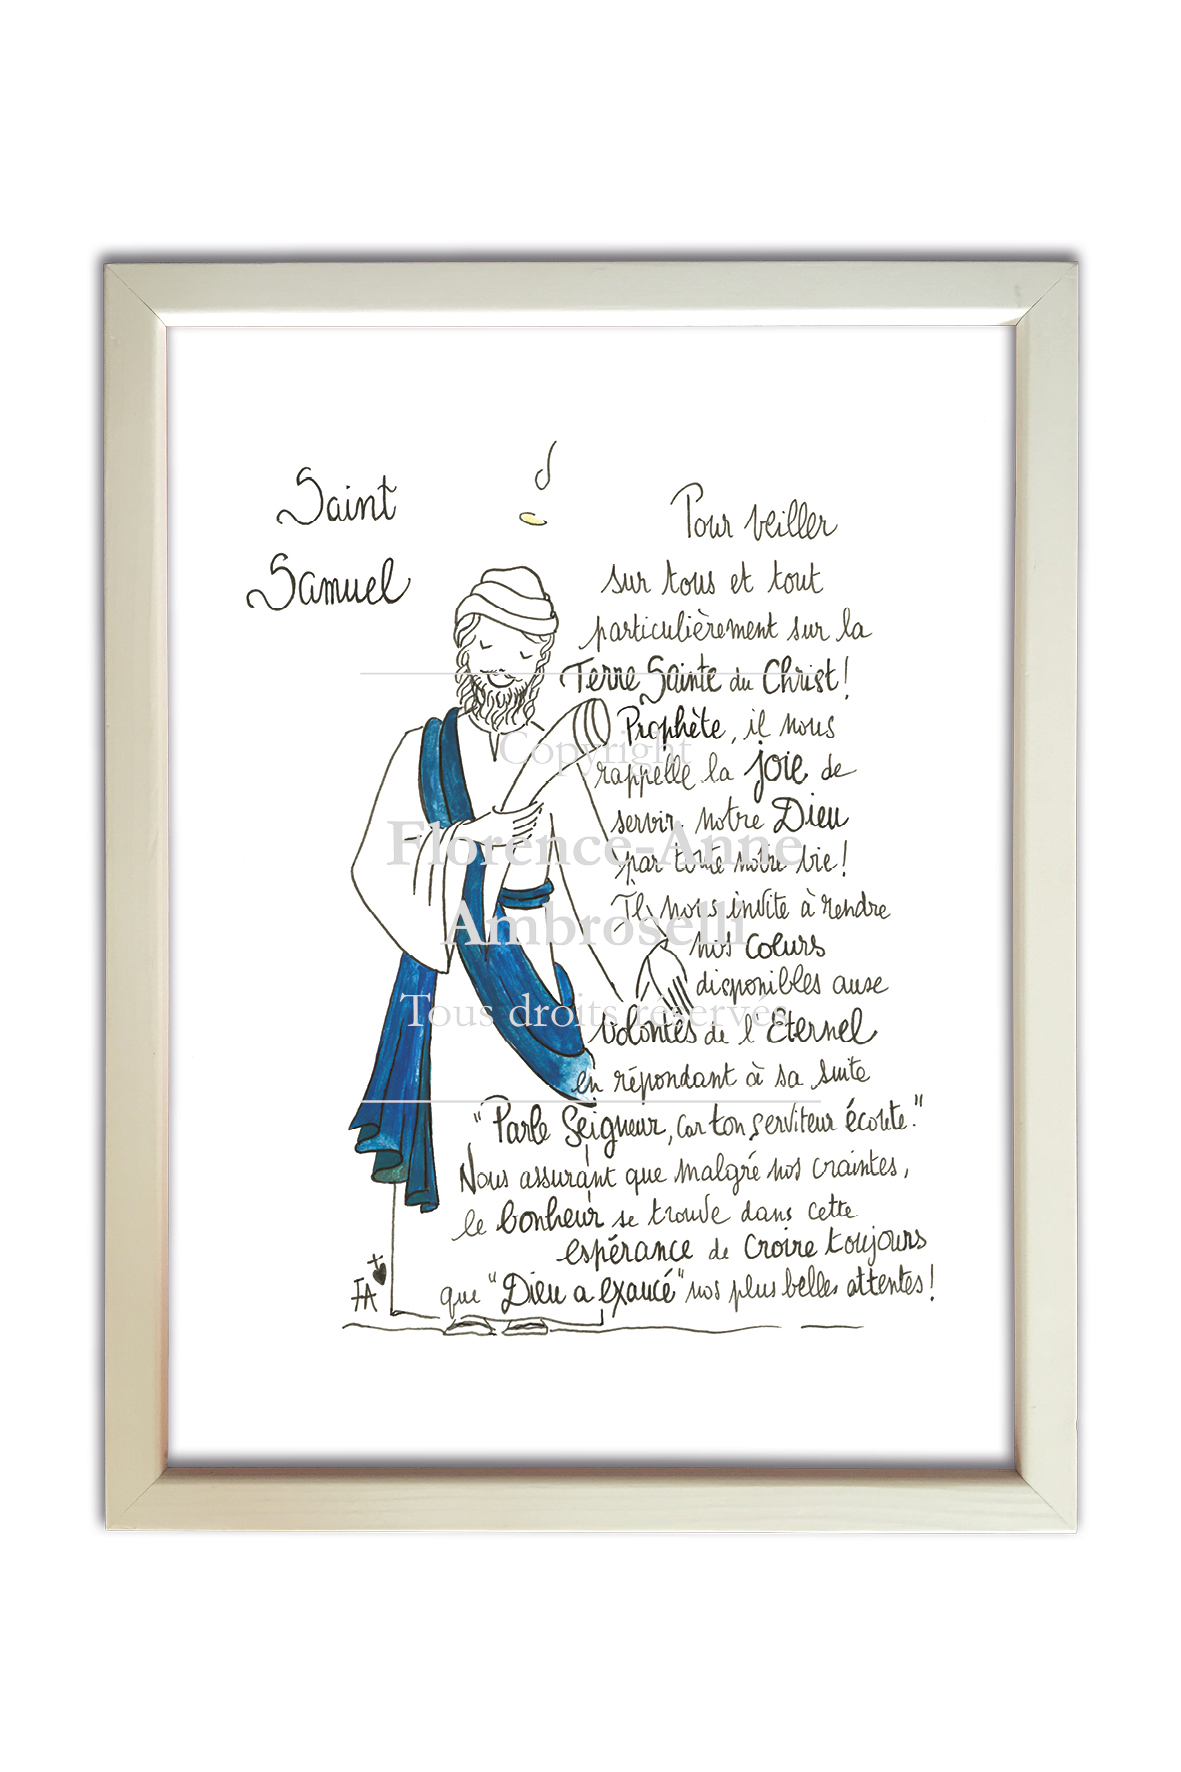 Saint
Samuel
Pour veiller
sur tous et tout
particulièrement sur la
Terre Sainte du Christ!
Prophète, il nous
rappelle la joie de
servir notre Dieu
par toute notre vie!
Il nous invite à rendre
nos coeurs
disponibles aux
volontés de l'Eternel
en répondant à sa suite
"Parle Seigneur, car ton serviteur écoute."
Nous assurant que malgré nos craintes,
le bonheur se trouve dans cette
espérance de croire toujours
que "Dieu a exaucé" nos plus belles attentes!
FA
Copyright
Florence-Anne
Ambroselli
Tous droits réservés